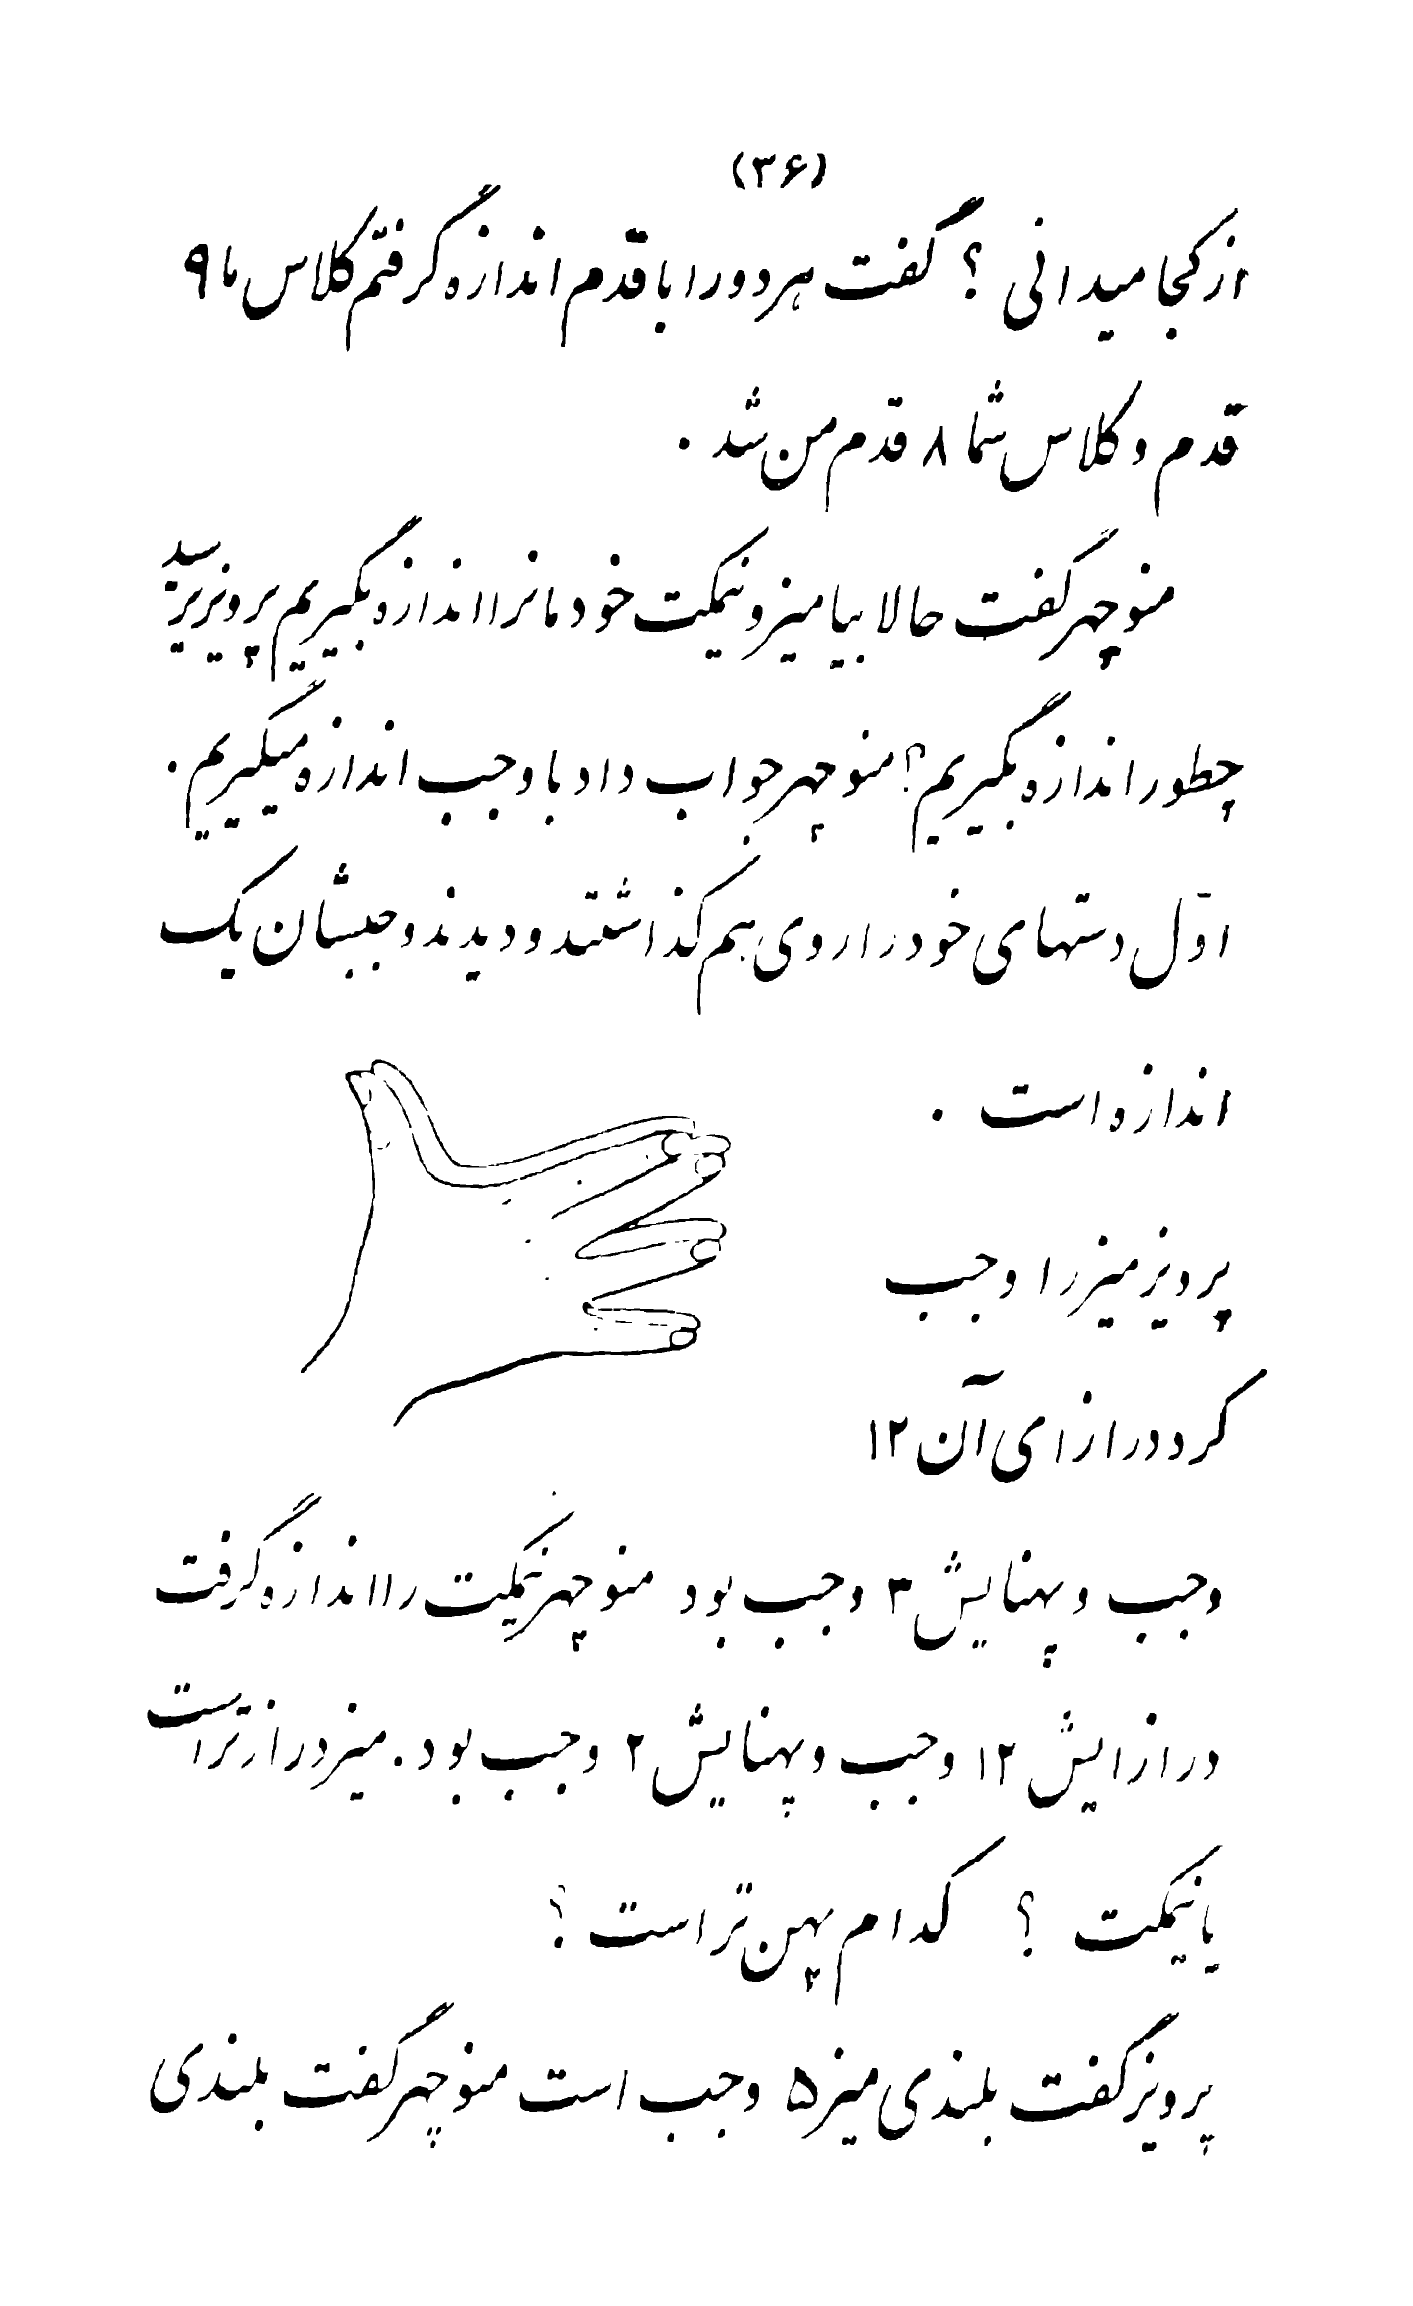 (۳۶)
از کجا میدانی ؟ گفت هر دو را با قدم اندازه گرفتم کلاس ما ۹
قدم و کلاس شما ۸ قدم من شد .
منوچهر گفت حالا بیا میز و نیمکت خودمانرا اندازه بگیریم پرویز پرسید
چطور اندازه بگیریم ؟ منوچهر جواب داد با وجب اندازه میگیریم .
اوّل دستهای خود را روی هم گذاشتند و دیدند وجبشان یک
اندازه است .
پرویز میز را وجب
کرد درازای آن ۱۲
وجب و پهنایش ۳ وجب بود منوچهر نیمکت را اندازه گرفت
درازایش ۱۲ وجب و پهنایش ۲ وجب بود . میز درازتر است
یا نیمکت ؟ کدام پهن تر است ؟
پرویز گفت بلندی میز ۵ وجب است منوچهر گفت بلندی